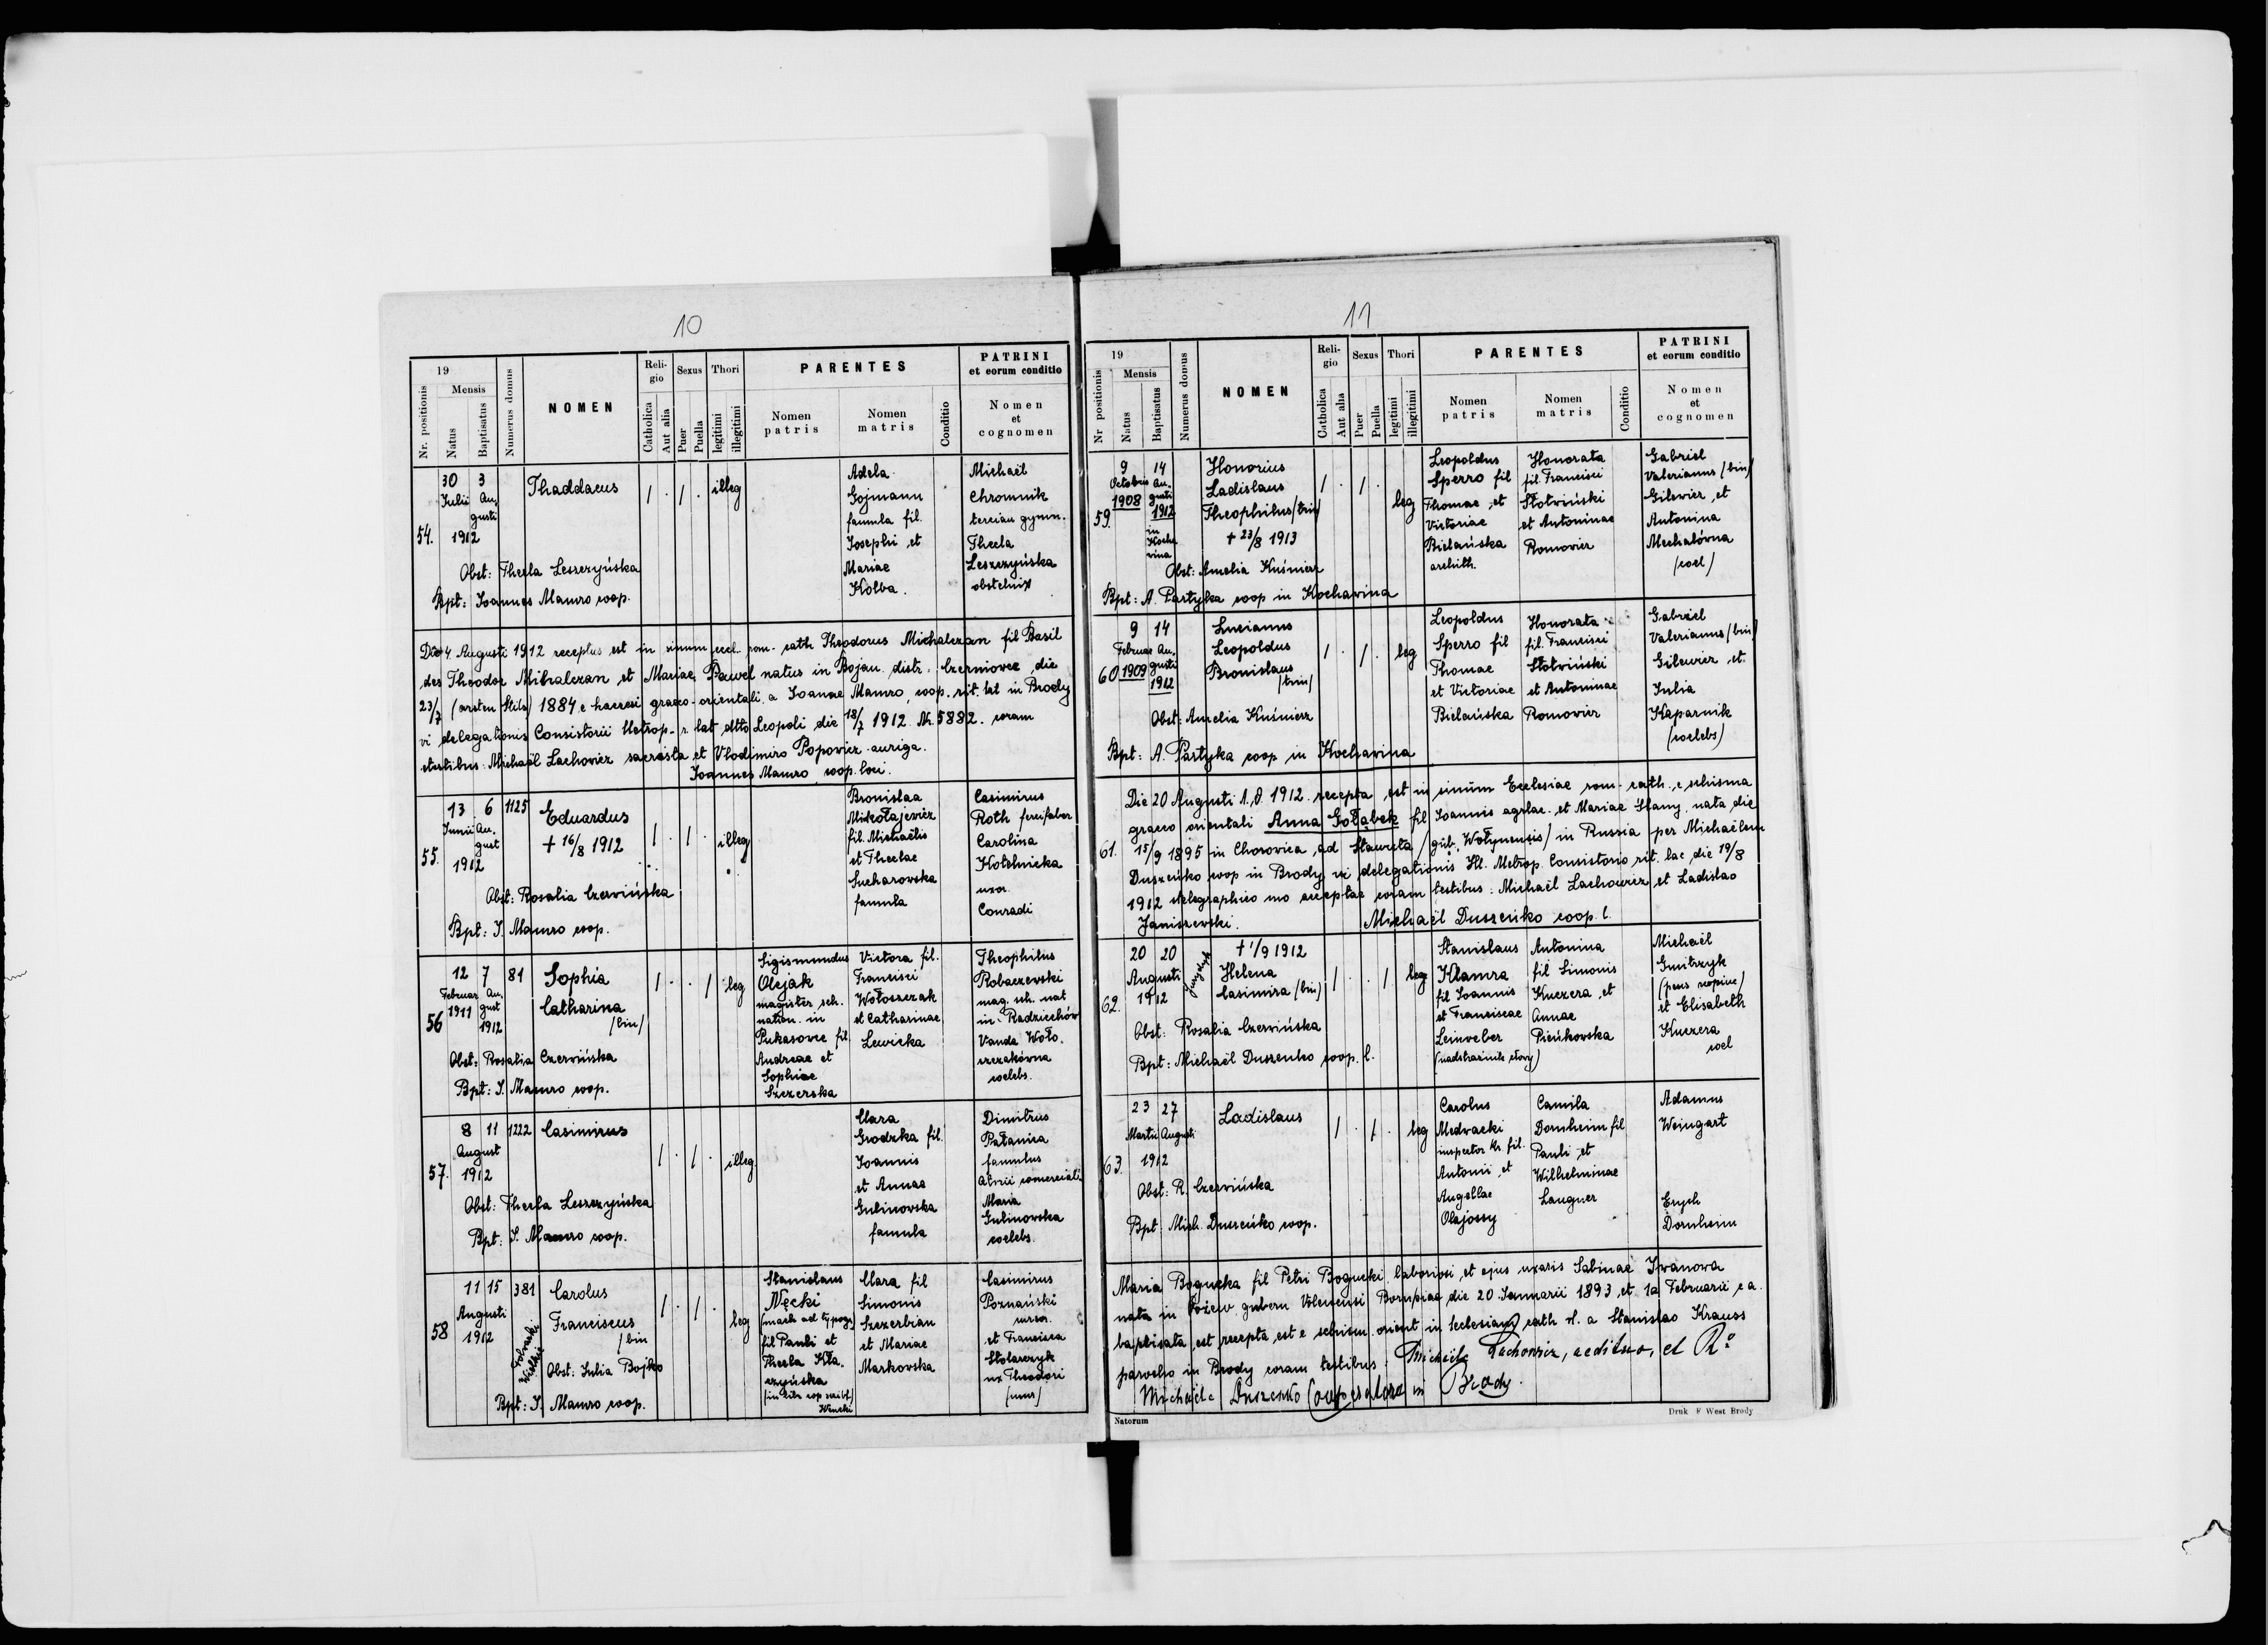 10
19
Mensis
Nr. positionis
Natus
Baptisatus
Numerus domus
NOMEN
Reli-
gio
Catholica
Aut alia
Sexus
Puer
Puella
Thori
legitimi
illegitimi
PARENTES
Nomen
patris
Nomen
matris
Conditio
PATRINI
et eorum conditio
Nomen
et
cognomen
54.
30 3
Julii Au-
gusti
1912
Thaddaeus
1 . 1 . illeg
Adela
Gojmann
famula fil.
Josephi et
Mariae
Kolba.
Michaël
Chromnik
tercian gymn.
Thecla
Leszczyńska
obstetrix
Obst: Thecla Leszczyńska
Bpt: Joannes Mauro coop.
Die 4 Augusti 1912 receptus est in sinum eccl. rom. cath Theodorus Michalczan fil Basil
des Theodor Mihalczan et Mariae Pawel natus in Bojan distr. Czerniovce die
23/7 1884 e haeresi graeco-orientali a Joanne Mauro coop. rit. lat in Brody
vi delegationis Consistorii Metrop. r. lat dtto Leopoli die 18/7 1912 Nr. 5882. coram
testibus: Michaël Lachovicz sacrista et Vlodimiro Popovicz auriga.
Joannes Mauro coop. loci.
55.
13 6 1125
Junii Au-
gust
1912
Eduardus
+ 16/8 1912
1 . 1 . illeg
Bronislaa
Mikołajevicz
fil. Michaëlis
et Theclae
Sucharowska
famula
Casimirus
Roth ferrifaber
Carolina
Kotelnicka
uxor
Conradi
Obst: Rosalia Czerwińska
Bpt: J. Mauro coop.
56
12 7 81
Februar Au-
1911 gust
1912
Sophia
Catharina
/bin/
1 . . 1 leg
Sigismundus
Olejak
magister sch.
nation. in
Pukasovce fil.
Andreae et
Sophiae
Szczerska
Victora fil.
Francisci
Wołoszczak
et Catharinae
Lewicka
Theophilus
Robaczewski
mag. sch. nat
in Radziechów
Vanda Woło-
szczakówna
coelebs.
Obst: Rosalia Czerwińska
Bpt: J. Mauro coop.
57.
8 11 1222
August
1912
Casimirus
1 . 1 . illeg.
Clara
Grodzka fil.
Joannis
et Annae
Gulinowska
famula
Dimitrius
Patanica
famulus
Maria
Gulinowska
coelebs.
Obst: Thecla Leszczyńska
Bpt: J. Mauro coop.
58
11 15 381
Augusti
1912
Folwarki
Wielkie
Carolus
Franciscus
/bin
1 . 1 . leg
Stanislaus
Nęcki
fil Pauli et
Thecla Kła-
czyńska
Clara fil
Simonis
Szczerbian
et Mariae
Markowska
Casimirus
Poznański
et Francisca
Stolarczyk
ux Theodori
Obst: Julia Bojko
Bpt: J. Mauro coop.
11
19
Mensis
Nr positionis
Natus
Baptisatus
Numerus domus
NOMEN
Reli-
gio
Catholica
Aut alia
Sexus
Puer
Puella
Thori
legitimi
illegitimi
PARENTES
Nomen
patris
Nomen
matris
Conditio
PATRINI
et eorum conditio
Nomen
et
cognomen
59.
9 14
Octobris Au-
1908 gusti
1912
in
Kocha
vina
Honorius
Ladislaus
Theophilus/trin/
+ 23/8 1913
1 . 1 . leg
Leopoldus
Sperro fil
Thomae et
Victoriae
Bielańska
archith.
Honorata
fil. Francisci
Słotwiński
et Antoninae
Romovicz
Gabriel
Valerianus /bin/
Gilewicz et
Antonina
Mechalówna
/coel/
Obst: Amelia Kuśnierz
Bpt: A. Partyka coop in Kochawina
60
9 14
Februar Au-
1909 gusti
1912
Lucianus
Leopoldus
Bronislaus
/trin/
1 . 1 . leg
Leopoldus
Sperro fil
Thomae
et Victoriae
Bielańska
Honorata
fil. Francisci
Słotwiński
et Antoninae
Romovicz
Gabriel
Valerianus /bin/
Gilewicz et
Julia
Kaparnik
/coelebs/
Obst: Amelia Kuśnierz
Bpt: A. Partyka coop in Kochawina
61.
Die 20 Augusti 1912 recepta est in sinum Ecclesiae rom-cath. e schisma
graeco orientali Anna Gołąbek fil Joannis agrlae. et Mariae Slany nata die
15/9 1895 in Chorovica ad /gub. Wołynensis/ in Russia per Michaëlem
Duszeńko coop in Brody vi delegationis Ill. Metrop. Consistorio rit. lac die 19/8
1912 telegraphico mo acceptae coram testibus: Michaël Lachowicz et Ladislao
Janiszewski. Michaël Duszeńko coop. l.
62.
20 20
Augusti
1912
Jurydyk
+ 1/9 1912
Helena
Casimira /bin/
1 . . 1 leg
Stanislaus
Klamra
fil Joannis
et Franciscae
Leinveber
Antonina
fil Simonis
Kuczera et
Annae
Pieńkowska
Michaël
Gmitrzyk
et Elisabeth
Kuczera
coel
Obst: Rosalia Czerwińska
Bpt: Michaël Duszenko coop. l.
63.
23 27
Martii Augusti
1912
Ladislaus
1 . 1 . leg
Carolus
Medvecki
inspector fil.
Antonii et
Angellae
Olajossy
Camila
Dornheim fil
Pauli et
Wilhelminae
Laugner
Adamus
Weingart
Erych
Dornheim
Obst: R. Czerwińska
Bpt: Mich. Duszeńko coop.
Maria Bogucka fil Petri Bogucki laboriosi et ejus uxoris Sabinae Iwanowa
nata in gubern die 20 Januarii 1893 et 1a Februarii e a.
baptisata est recepta est e schism. orient in Ecclesiam cath r. l. a Stanislao Krauss
parocho in Brody coram testibus: Michaële Lachowicz, aedituo, et Ro
Michaële Duszenko Cooperatore in Brody.
Natorum
Druk F West Brody